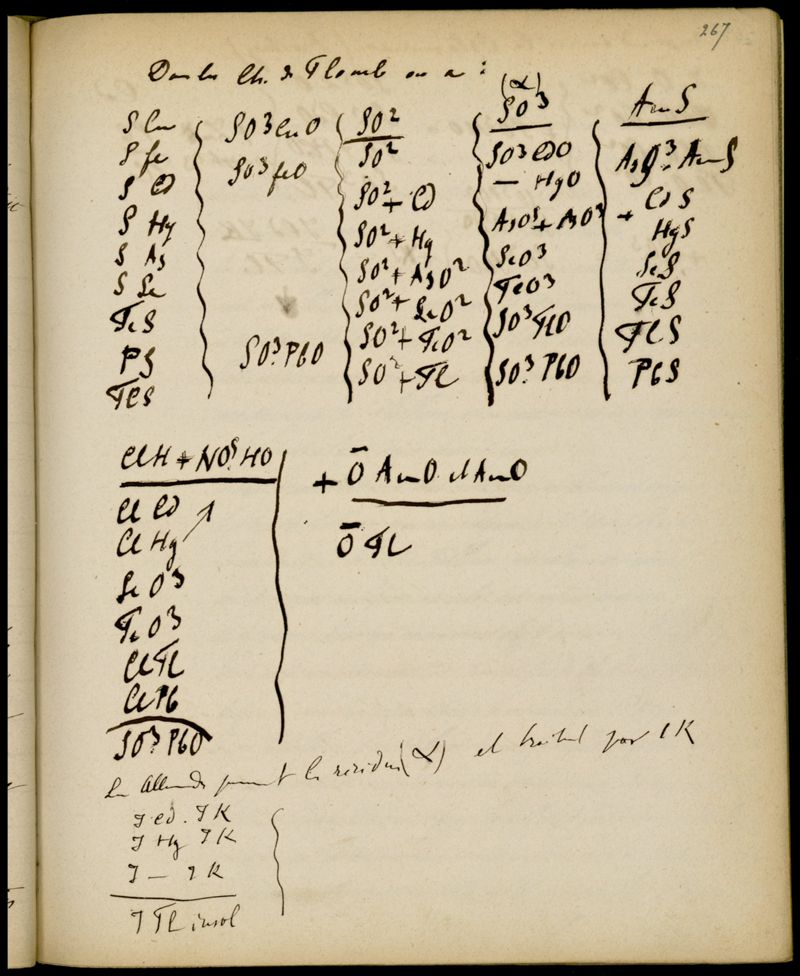 267
Dans les Ch. de Plomb on a :
S Cu
S fe
S Cd
S Hg
S As
S Se
Te S
P S
Tl S
SO3CuO
SO3 feO
SO3. PbO
SO2
SO2
SO2 + Cd
SO2 + Hg
SO2 + AsO2
SO2 + SeO2
SO2 + TeO2
SO2 + Tl
(α)
SO3
SO3 CdO
— HgO
AsO5 + AsO3
SeO3
TeO3
SO3 TlO
SO3. PbO
Am S
AsO3. Am S
+ Cd S
HgS
SeS
TeS
Tl S
PbS
ClH + NO5HO
Cl Cd
Cl Hg
Se O3
Te O3
Cl Tl
Cl Pb
SO3. PbO
+ O̅ AmO et AmO
O̅ Tl
Les Allemands prennent le résidu (α) et traitent par I K
I Cd. I K
I Hg I K
I — I K
I Tl insol